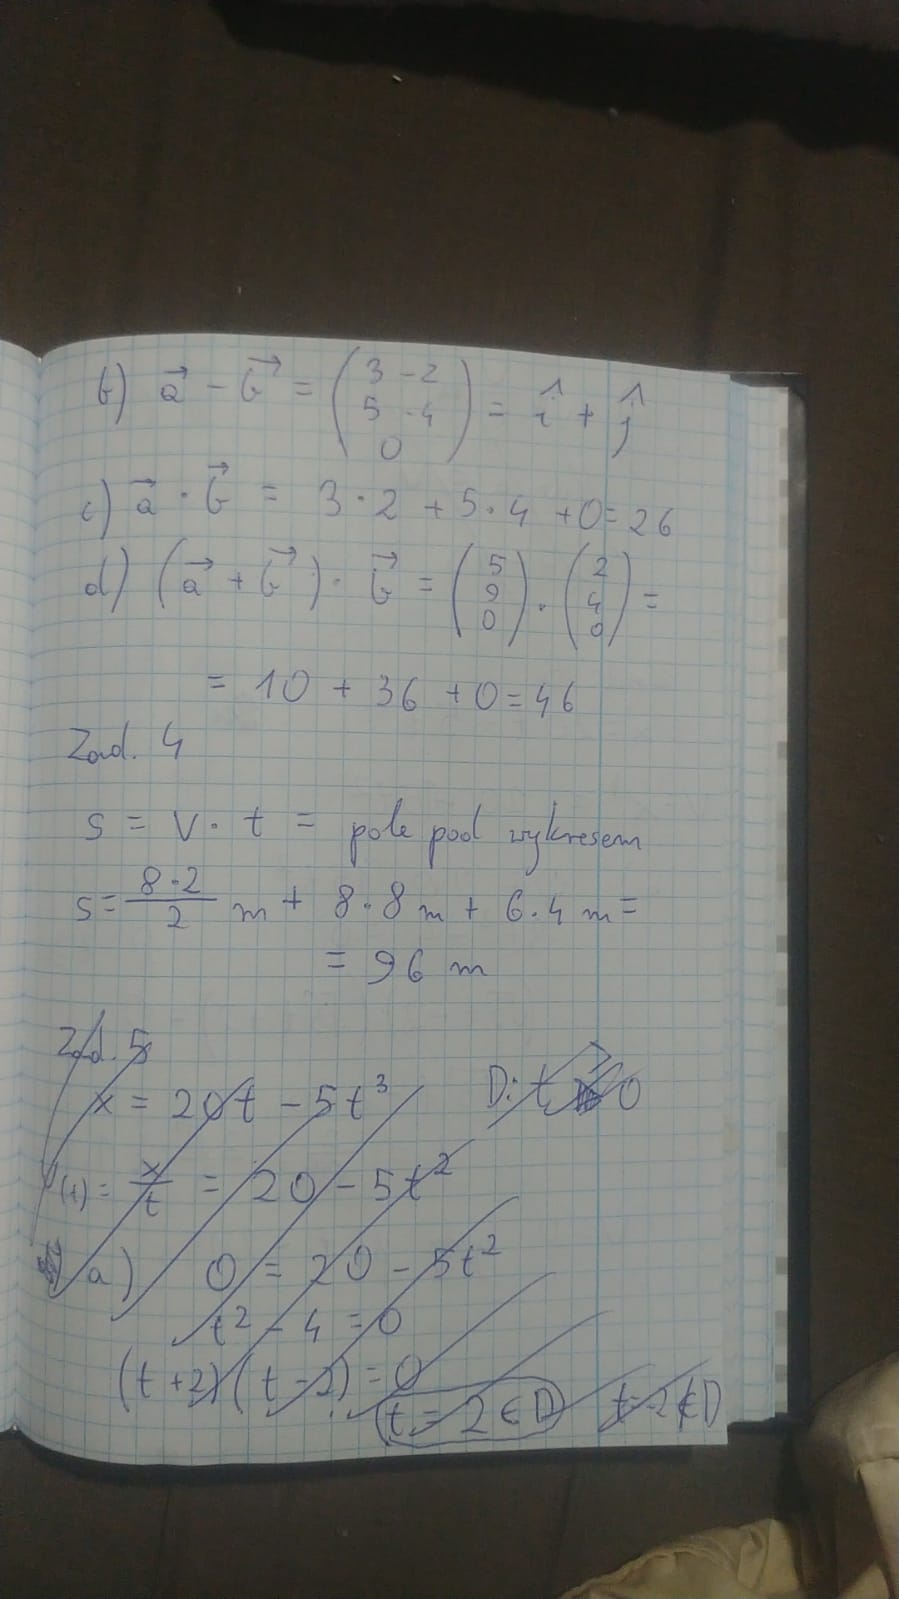 b) a⃗ - b⃗ = (3 - 2
5 - 4
0) = î + ĵ
c) a⃗ · b⃗ = 3·2 + 5·4 + 0 = 26
d) (a⃗ + b⃗)· b⃗ = (5
9
0) · (2
4
0) =
= 10 + 36 + 0 = 46
Zad. 4
s = v · t = pole pod wykresem
s = 8·2/2 m + 8·8 m + 6·4 m =
= 96 m
Zad. 5
x = 20t - 5t³ D: t ≥ 0
v(t) = x/t = 20 - 5t²
a) 0 = 20 - 5t²
t² - 4 = 0
(t+2)(t-2) = 0
t = 2 ∈ D t=-2 ∉ D